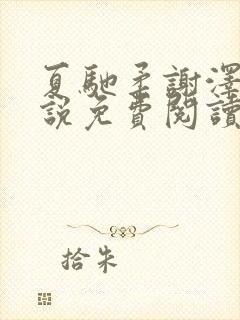 夏馳柔謝澤
說免費閱讀
拾朱